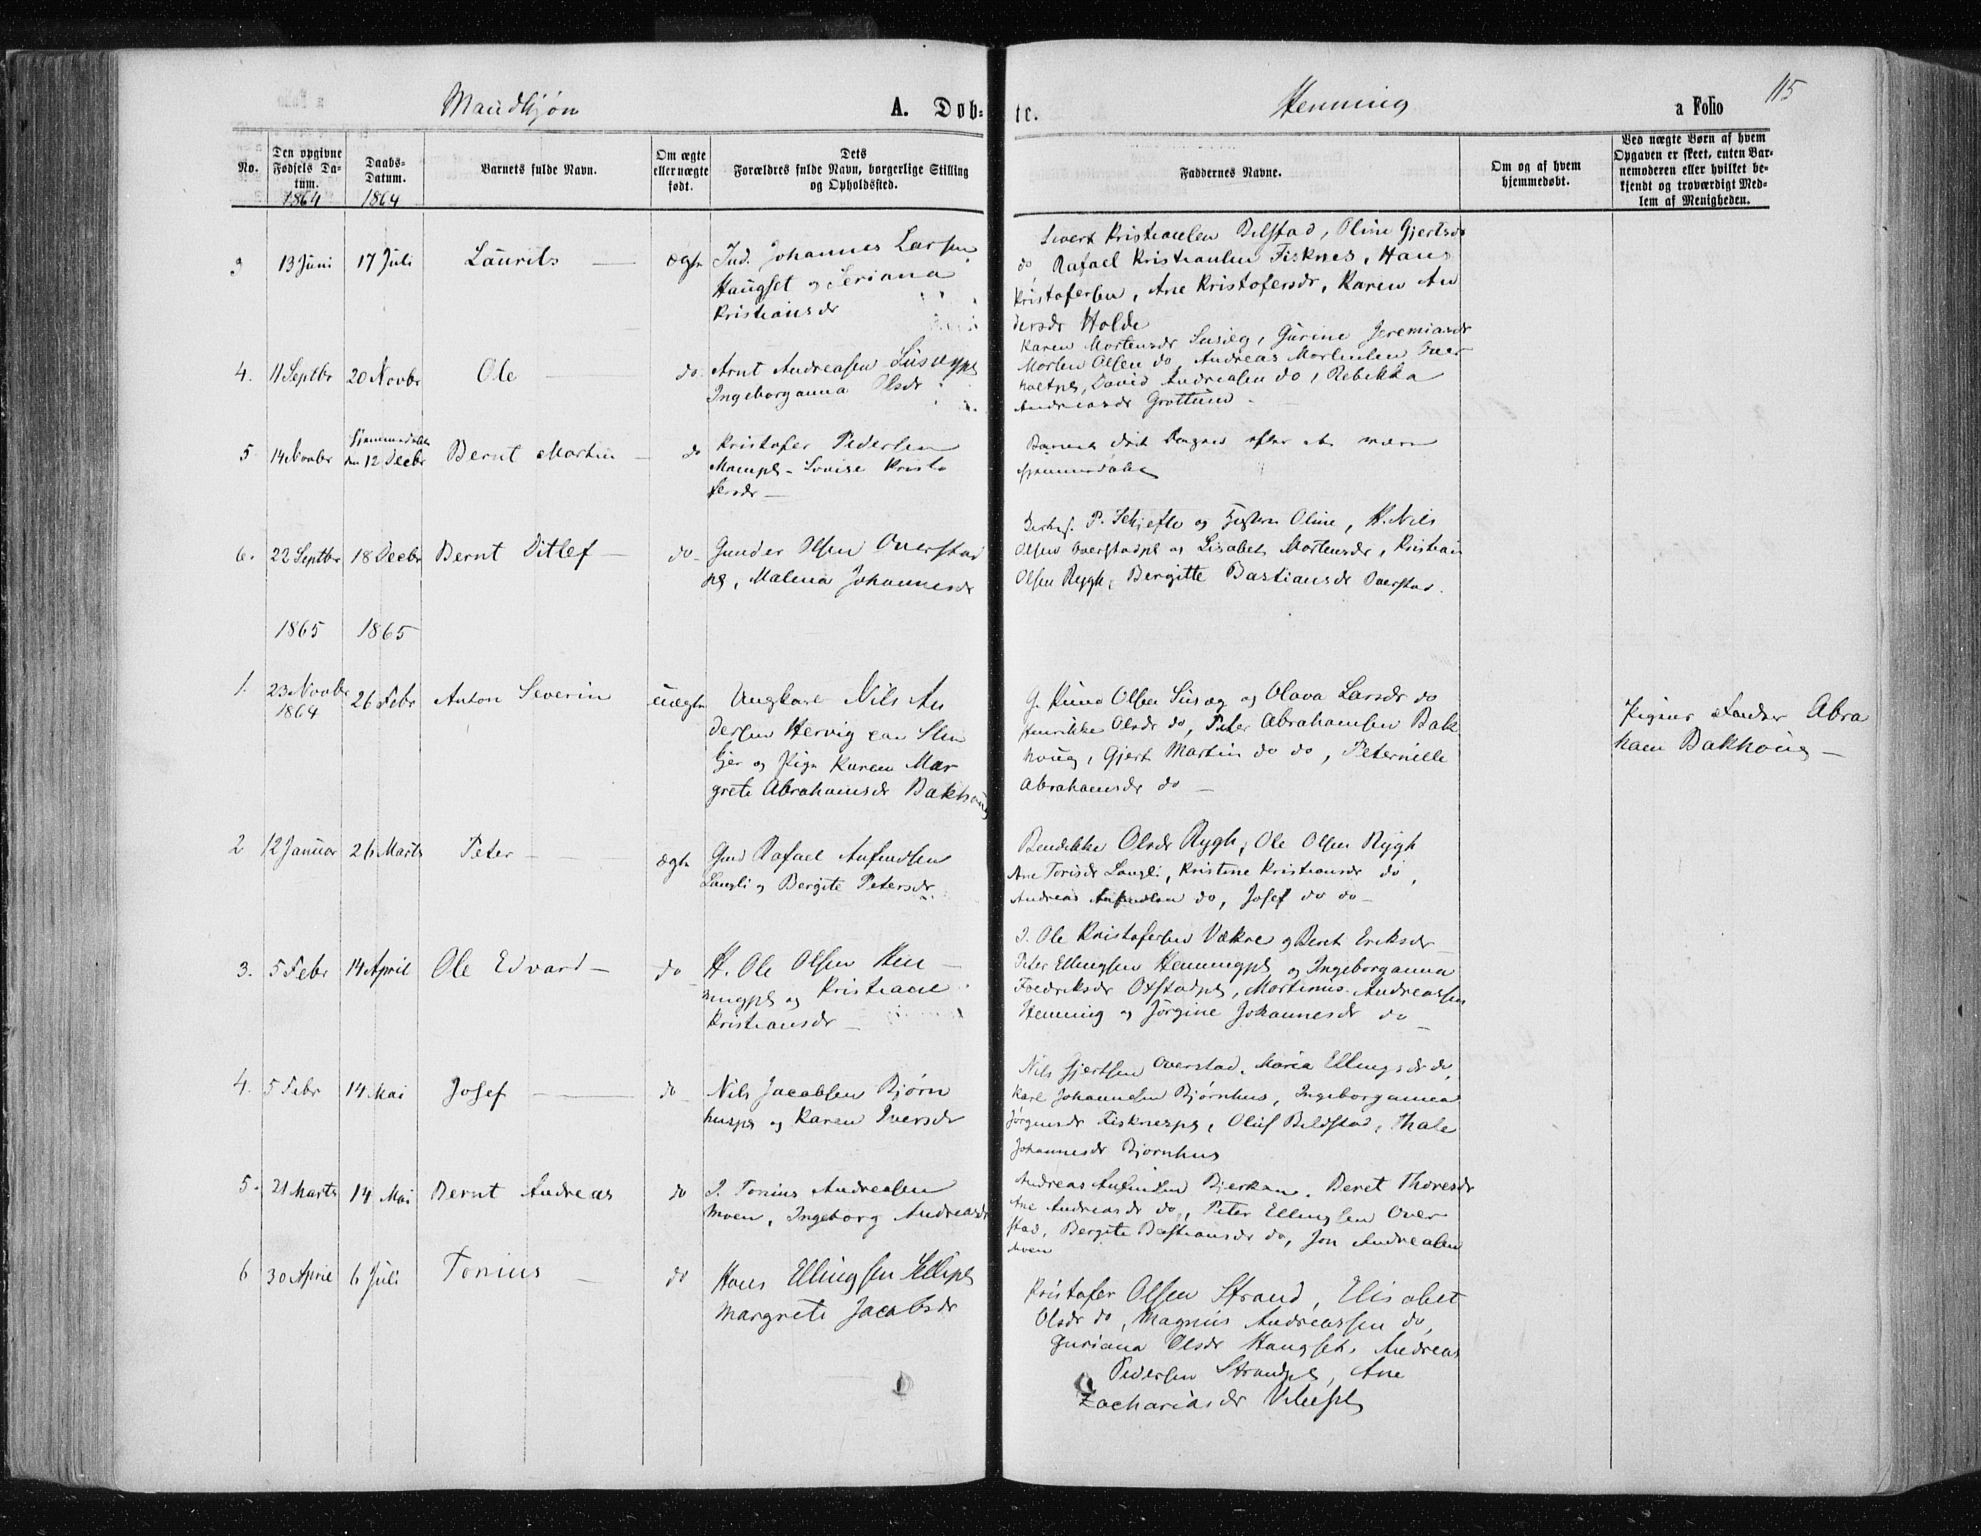 115
Mandkjøn A. Døb= te. Henning a Folio
No.
Den opgivne
Fødsels Da-
tum.
1864
Daabs-
Datum.
1864
Barnets fulde Navn.
Om ægte
eller uægte
født.
Dets
Forældres fulde Navn, borgerlige Stilling
og Opholdssted.
Faddernes Navne.
Om og af hvem
hjemmedøbt.
Ved uægte Børn af hvem
Opgaven er skeet, enten Bar-
nemoderen eller hvilket be-
kjendt og troværdigt Med-
lem af Menigheden.
3 13 Juni 17 Juli Laurits ægte
Ind. Johannes Larsen
Haugset og Seriana
Kristiansdr
Sivert Kristiansen Bilstad, Oline Gjertsdr
do, Rafael Kristiansen Fisknes, Hans
Kristofersen, Ane Kristofersdr, Karen An
dersdr Holde
4. 11 Septbr 20 Novbr Ole do
Arnt Andreasen Susægpl
Ingeborganna Olsdr
Karen Mortensdr Susæg, Gurine Jeremiasdr
Morten Olsen do, Andreas Mortensen Over
holtpl, David Andreasen do, Rebekka
Andreasdr Grøttum
5 14 Novbr Hjemmedøbt
den 12 Decbr Bernt Martin do
Kristofer Pedersen
Moenpl - Lovise Kristo
fersdr
Barnet død efter at være
hjemmedøbt
6. 22 Septbr 18 Decbr Bernt Ditlef do
Gunder Olsen Overstad
pl, Malena Johannesdr
P. Schjefte og Oline, H. Nils
Olsen Overstadpl og Lisabet Mortensdr, Kristian
Olsen Rygh, Bergitte Bastiansdr Overstad.
1865 1865
1. 23 Novbr
1864 26 Febr Anton Severin uægte
Ungkarl Nils An
dersen Hervig paa Sten
kjer og Pige Karen Mar
grete Abrahamsdr Bakhoug
G. Rino Olsen Susæg og Olava Larsdr do
Henrikke Olsdr do, Peter Abrahamsen Bak
houg, Gjert Martin do do, Peternille
Abrahamsdr do
Pigens Fader Abra
ham Bakhoug
2 12 Januar 26 Marts Peter ægte
Gmd Rafael Anfindsen
Langli og Bergite Petersdr
Bendikke Olsdr Rygh, Ole Olsen Rygh
Ane Torisdr Langli, Kristine Kristiansdr do,
Andreas Anfindsen do, Josef do do
3. 5 Febr 14 April Ole Edvard do
H. Ole Olsen Hen
ningpl og Kristiane
Kristiansdr
I. Ole Kristofersen Vækre og Beret Eriksdr
Peter Ellingsen Henningpl og Ingeborganna
Fredriksdr Oxstadpl, Mortinus Andreassen
Henning og Jørgine Johannesdr do
4. 5 Febr 14 Mai Josef do
Nils Jacobsen Bjørn
huspl og Karen Iversdr
Nils Gjertsen Overstad, Maria Ellingsdr do,
Karl Johannesen Bjørnhus, Ingeborganna
Jørgensdr Fisknespl, Oluf Bildstad, Thale
Johannesdr Bjørnhus
5. 21 Marts 14 Mai Bernt Andreas do
I. Tonius Andreasen
Moen, Ingeborg Andreasdr
Andreas Anfindsen Bjerkan, Beret Thoresdr
Ane Andreasdr do, Peter Ellingsen Over
stad, Bergite Bastiansdr do, Jon Andreasen
Moen
6 30 April 6 Juli Tonius do
Hans Ellingsen Sellipl
Margrete Jacobsdr
Kristofer Olsen Strand, Elisabet
Olsdr do, Magnus Andreassen do,
Guriana Olsdr Haugset, Andreas
Pedersen Strandpl, Ane
Zachariasdr